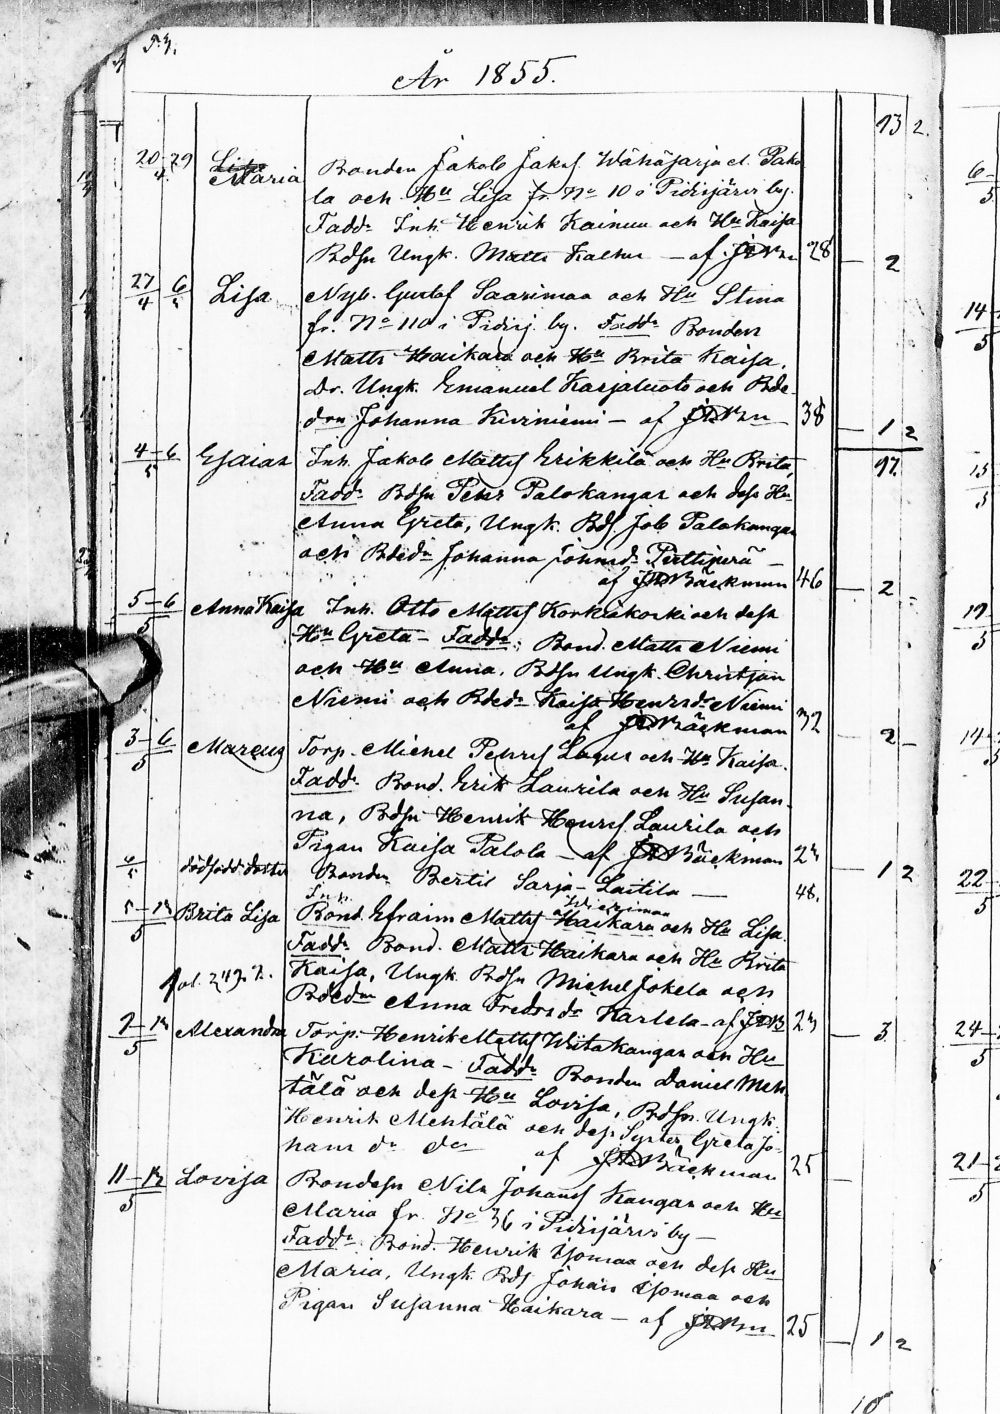 År 1855.
13 2.
20/4 29 Lisa Maria Bonden Jakob Jakss. Wähäsarja el. Pako
la och Hu Lisa fr. No 10 i Pidisjärvi by.
Fadd. Inh. Henrik Kainuu och Hu Kaisa
Bdsn Ungk. Matts 28 2
27/4 6/5 Lisa Nyb. Gustaf Saarimaa och Hu Stina
fr. No 110 i Pidisj. by. Fadd. Bonden
Matts Haikara och Hu Brita Kaisa.
Do. Ungk. Emanuel Karjaluoto och Bde
drn Johanna Kiviniemi – af 38 1 2
4–6/5 Esaias Inh. Jakob Mattss Erikkilä och Hu Brita,
17
Fadd. Bdsn Petter Palokangas och dess Hu
Anna Greta, Ungk. Bds Job Palokangas
och Bdedr Johanna Johnsdr Perttiperä –
af JDBäckman 46 2
5–6/5 Anna Kaisa Inh. Otto Mattss Korkiakoski och dess
Hu Greta – Fadd. Bond. Matts Niemi
och Hu Anna. Bdsn Ungk. Christjan
Niemi och Bdedr Kaisa Henrsdr Niemi
af JDBäckman 32 2
3–6/5 Marcus Torp. Michel Petterss Lagus och Hu Kaisa.
Fadd. Bond. Erik Laurila och Hu Susan-
na, Bdsn Henrik Henrss. Laurila och
Pigan Kaisa Palola – af JDBäckman 23 1 2
dödfödd dotter Bonden Bertil Sarja-Laitila – 48.
Inh. Wierimaa
5–13/5 Brita Lisa Bond. Efraim Mattss Haikara och Hu Lisa.
Fadd. Bond. Matts Haikara och Hu Brita
Fol. 249. 2. Kaisa, Ungk. Bdsn Michel Jokela och
Bdedrn Anna Fredrsdr Karlela – af JDB 23 3
7–13/5 Alexandra Torp. Henrik Mattss Wiitakangas och Hu
Karolina – Fadd. Bonden Daniel Meh
tälä och dess Hu Lovisa, Bdsn. Ungk.
Henrik Mehtälä och dess Syster Greta Jo-
hans dr do af JDBäckman 25
11–13/5 Lovisa Bondesn Nils Johanss Kangas och Hu
Maria fr. No 36 i Pidisjärvi by –
Fadd. Bond. Henrik Isomaa och dess Hu
Maria, Ungk. Bds Johan Isomaa och
Pigan Susanna Haikara – af 25 1 2